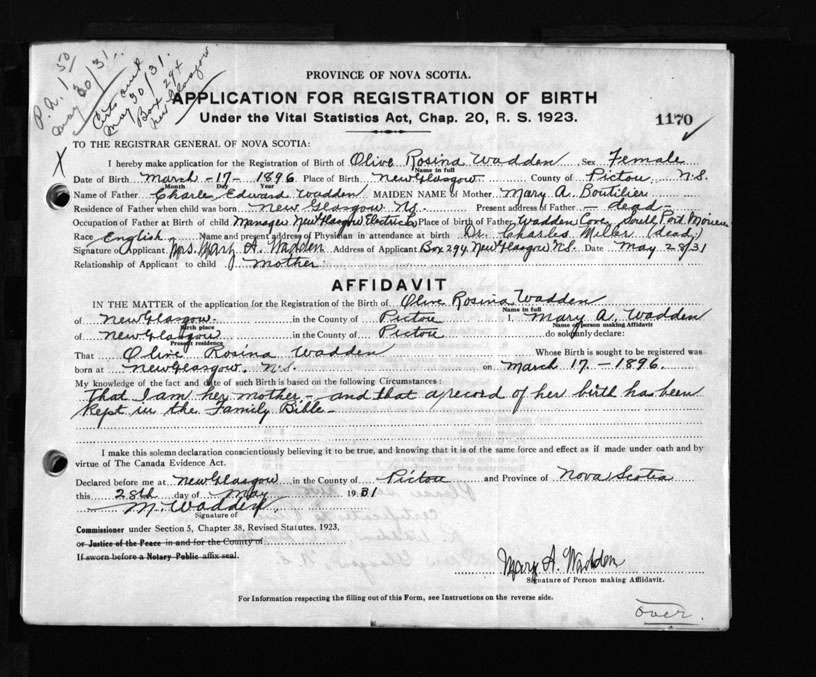 P.A. 1 50
May 30/31.
Certs sent
May 30/31.
Box 294
New Glasgow
PROVINCE OF NOVA SCOTIA.
APPLICATION FOR REGISTRATION OF BIRTH
Under the Vital Statistics Act, Chap. 20, R. S. 1923.
1170
TO THE REGISTRAR GENERAL OF NOVA SCOTIA:
X
I hereby make application for the Registration of Birth of Olive Rosina Wadden Sex Female
Name in full
Date of Birth March - 17 - 1896 Place of Birth New Glasgow County of Pictou N.S.
Month Day Year
Name of Father Charles Edward Wadden MAIDEN NAME of Mother Mary A. Boutilier
Residence of Father when child was born New Glasgow N.S. Present address of Father - dead -
Occupation of Father at Birth of child Manager New Glasgow Electric Co Place of birth of Father Wadden Cove, South Port Morien
Race English Name and present address of Physician in attendance at birth Dr. Charles Miller (dead)
Signature of Applicant Mrs. Mary A. Wadden Address of Applicant Box 294 New Glasgow N.S. Date May 28/31
Relationship of Applicant to child Mother
AFFIDAVIT
IN THE MATTER of the application for the Registration of the Birth of Olive Rosina Wadden
Name in full
of New Glasgow in the County of Pictou I, Mary A. Wadden
Birth place Name of person making Affidavit
of New Glasgow in the County of Pictou do solemnly declare:
Present residence
That Olive Rosina Wadden Whose Birth is sought to be registered was
born at New Glasgow. N.S. on March 17. - 1896.
My knowledge of the fact and date of such Birth is based on the following Circumstances:
That I am her mother - and that a record of her birth has been
kept in the Family Bible -
I make this solemn declaration conscientiously believing it to be true, and knowing that it is of the same force and effect as if made under oath and by
virtue of The Canada Evidence Act.
Declared before me at New Glasgow in the County of Pictou and Province of Nova Scotia
this 28th day of May 1931
M. Wadden
Signature of
Commissioner under Section 5, Chapter 38, Revised Statutes, 1923,
or Justice of the Peace in and for the County of
If sworn before a Notary Public affix seal.
Mary A. Wadden
Signature of Person making Affidavit.
For Information respecting the filling out of this Form, see Instructions on the reverse side.
over.